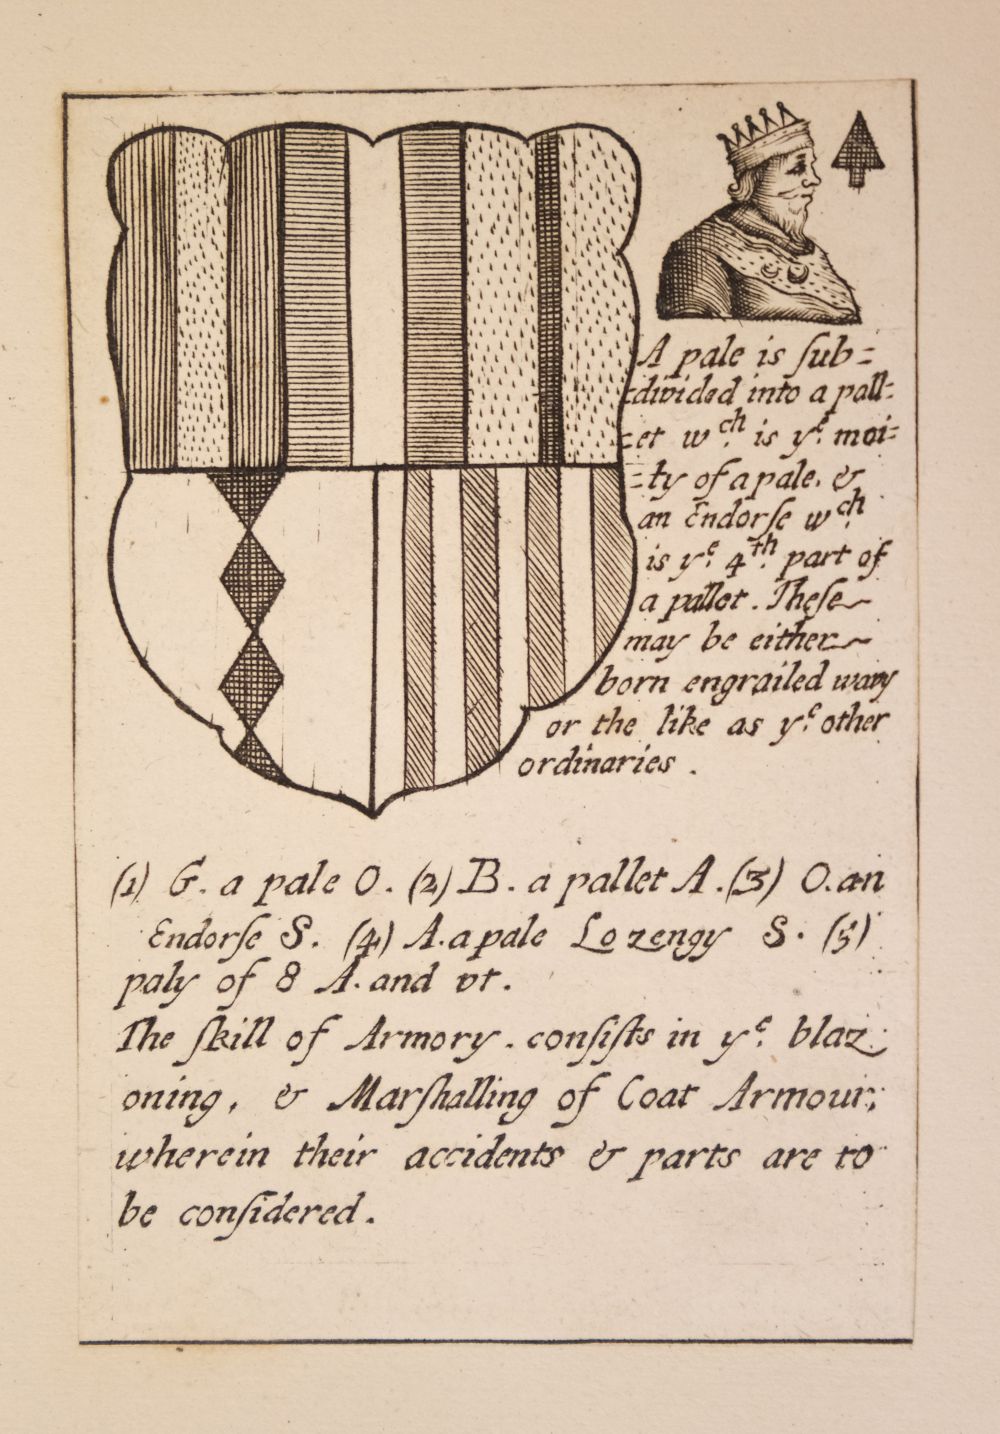 A pale is ſub=
=divided into a pall=
=et wch. is ye. moi=
=ty of a pale. &
an Endorſe wch.
is ye. 4th. part of
a pallet. Theſe
may be either
born engrailed wavy
or the like as ye. other
ordinaries.
(1) G. a pale O. (2) B. a pallet A. (3) O. an
Endorſe S. (4) A. a pale Lozengy S. (5)
paly of 8 A. and vt.
The ſkill of Armory. conſiſts in ye. blaz:
oning, & Marſhalling of Coat Armour;
wherein their accidents & parts are to
be conſidered.